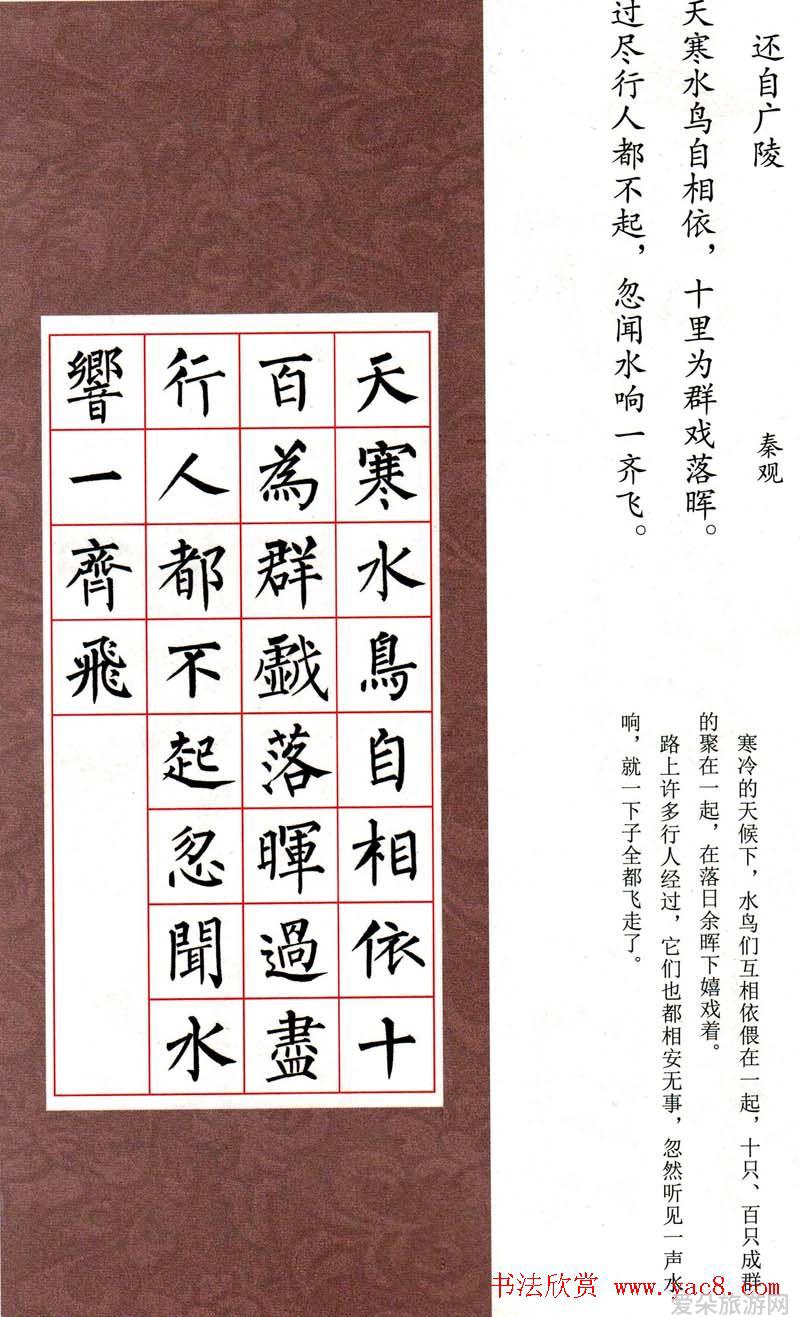 还自广陵
秦观
天寒水鸟自相依，十里为群戏落晖。
过尽行人都不起，忽闻水响一齐飞。
寒冷的天候下，水鸟们互相依偎在一起，十只、百只成群
的聚在一起，在落日余晖下嬉戏着。
路上许多行人经过，它们也都相安无事，忽然听见一声水
响，就一下子全都飞走了。
天寒水鳥自相依十
百為群戲落暉過盡
行人都不起忽聞水
響一齊飛
书法欣赏 www.yac8.com
爱朵旅游网